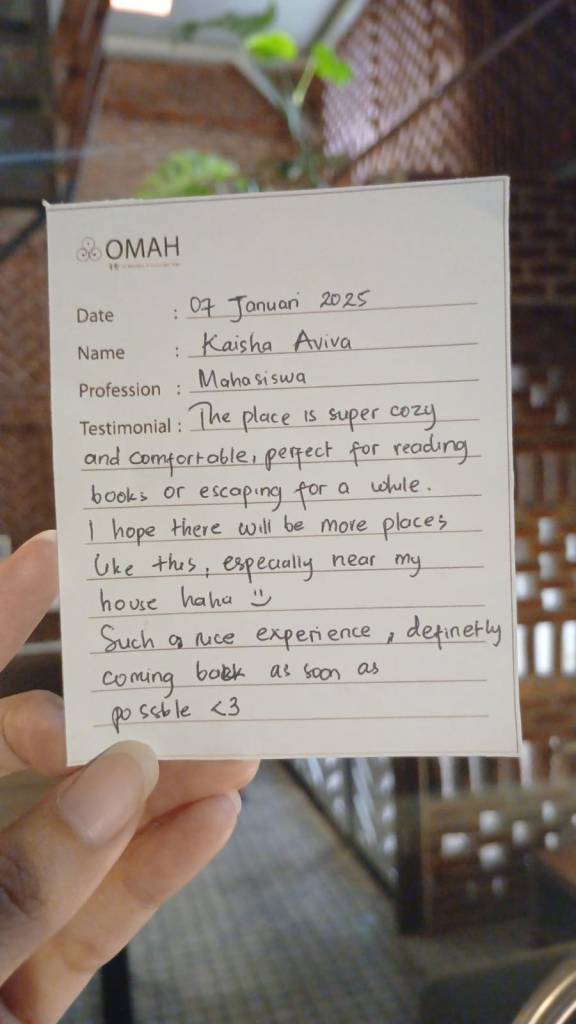 OMAH
Date : 07 Januari 2025
Name : Kaisha Aviva
Profession : Mahasiswa
Testimonial : The place is super cozy
and comfortable, perfect for reading
books or escaping for a while.
I hope there will be more places
like this, especially near my
house haha :)
Such a nice experience, definetly
coming back as soon as
possble <3